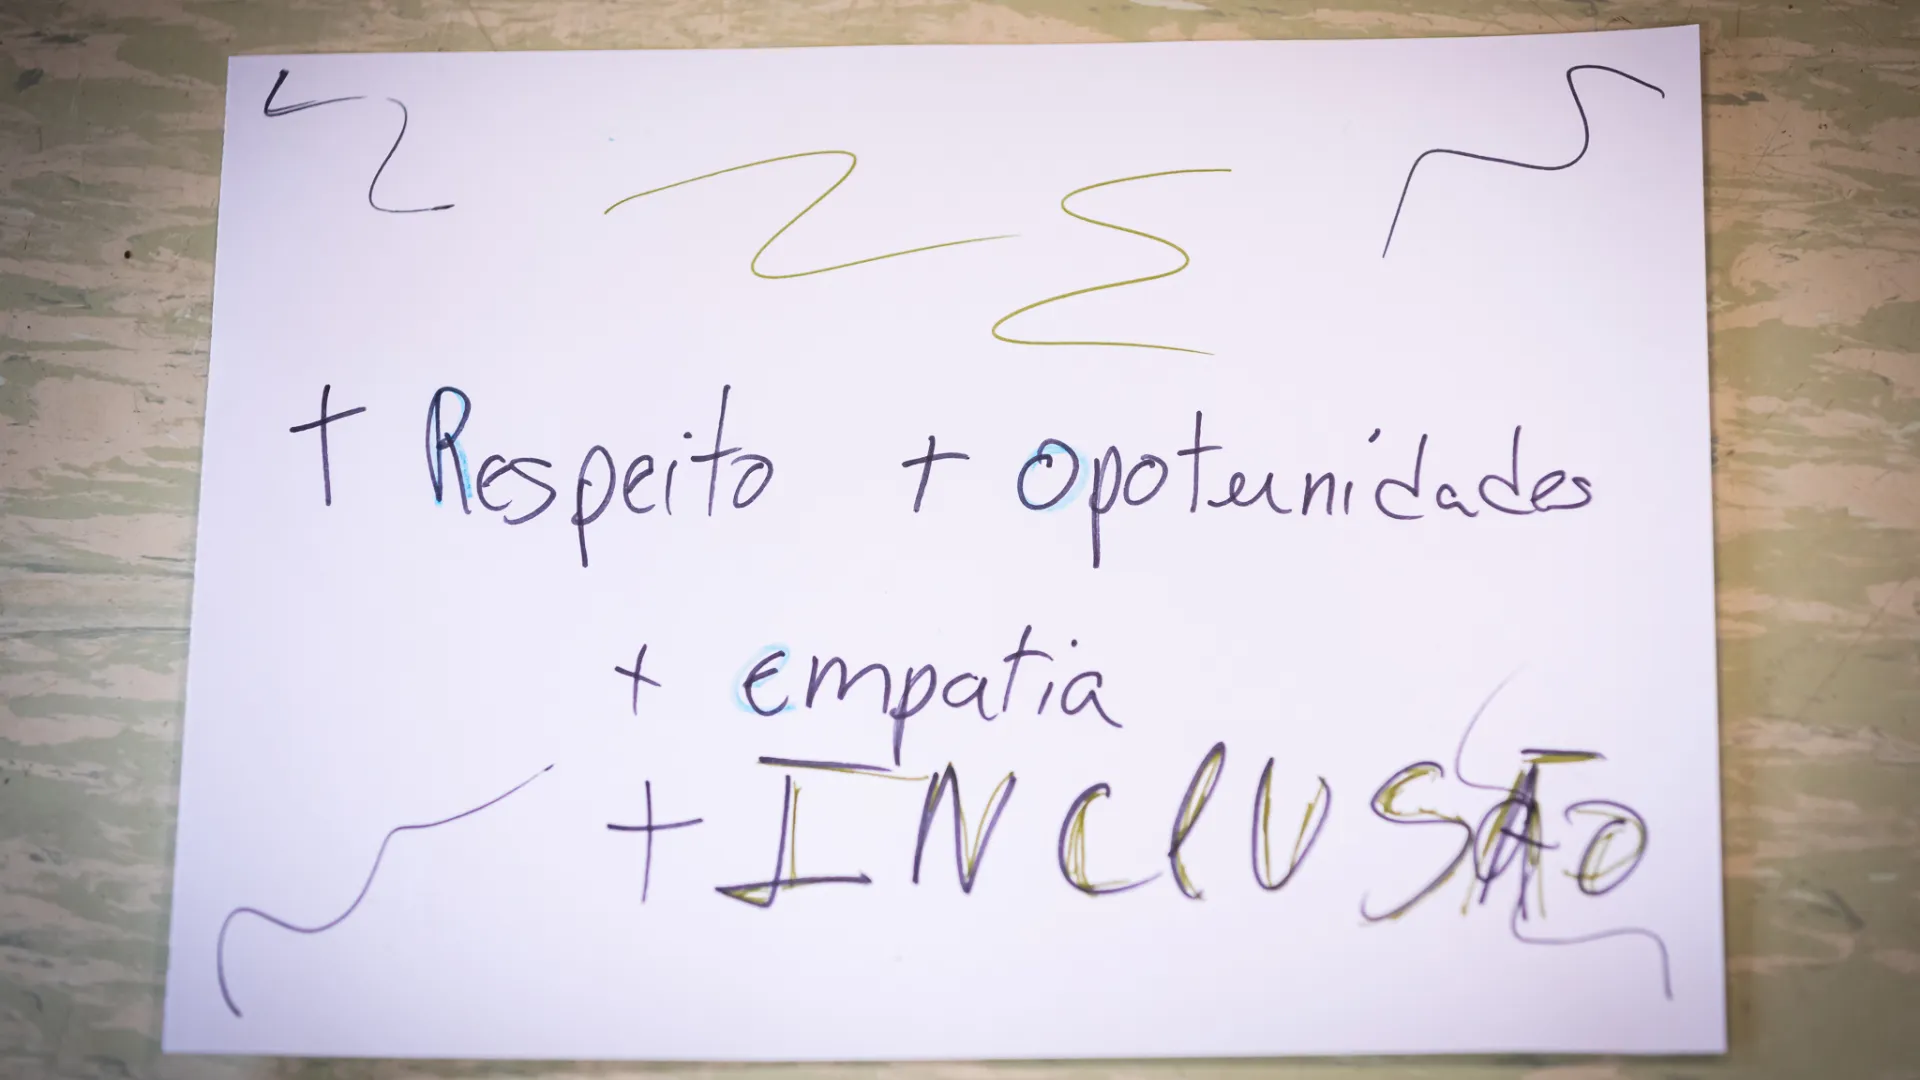 + Respeito + Opotunidades
+ empatia
+ INClUSÃO